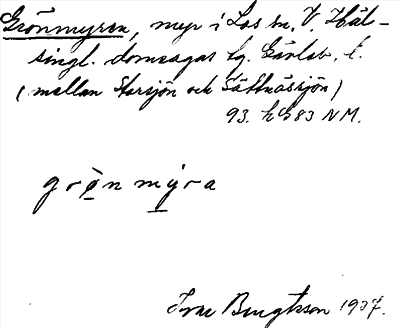 Grönmyren, myr i Los sn. V. Häl-
singl. domsagas tg. Gävleb. l.
(mellan Storsjön och Sättnässjön)
93. h 683 NM.
grø̀n mýra
Ivar Bengtsson 1937.